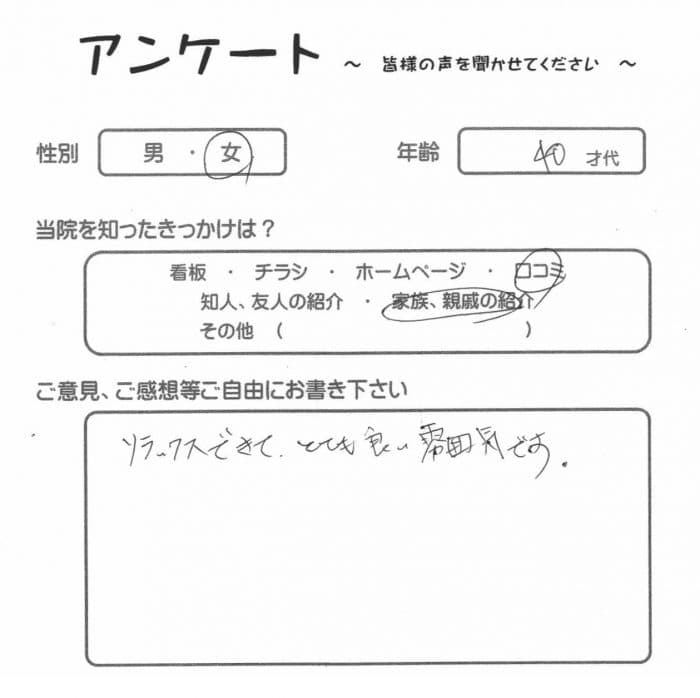 アンケート ～ 皆様の声を聞かせてください ～
性別 男 ・ 女 年齢 40 才代
当院を知ったきっかけは？
看板 ・ チラシ ・ ホームページ ・ 口コミ
知人、友人の紹介 ・ 家族、親戚の紹介
その他 （ ）
ご意見、ご感想等ご自由にお書き下さい
リラックスできて、とても良い雰囲気です。